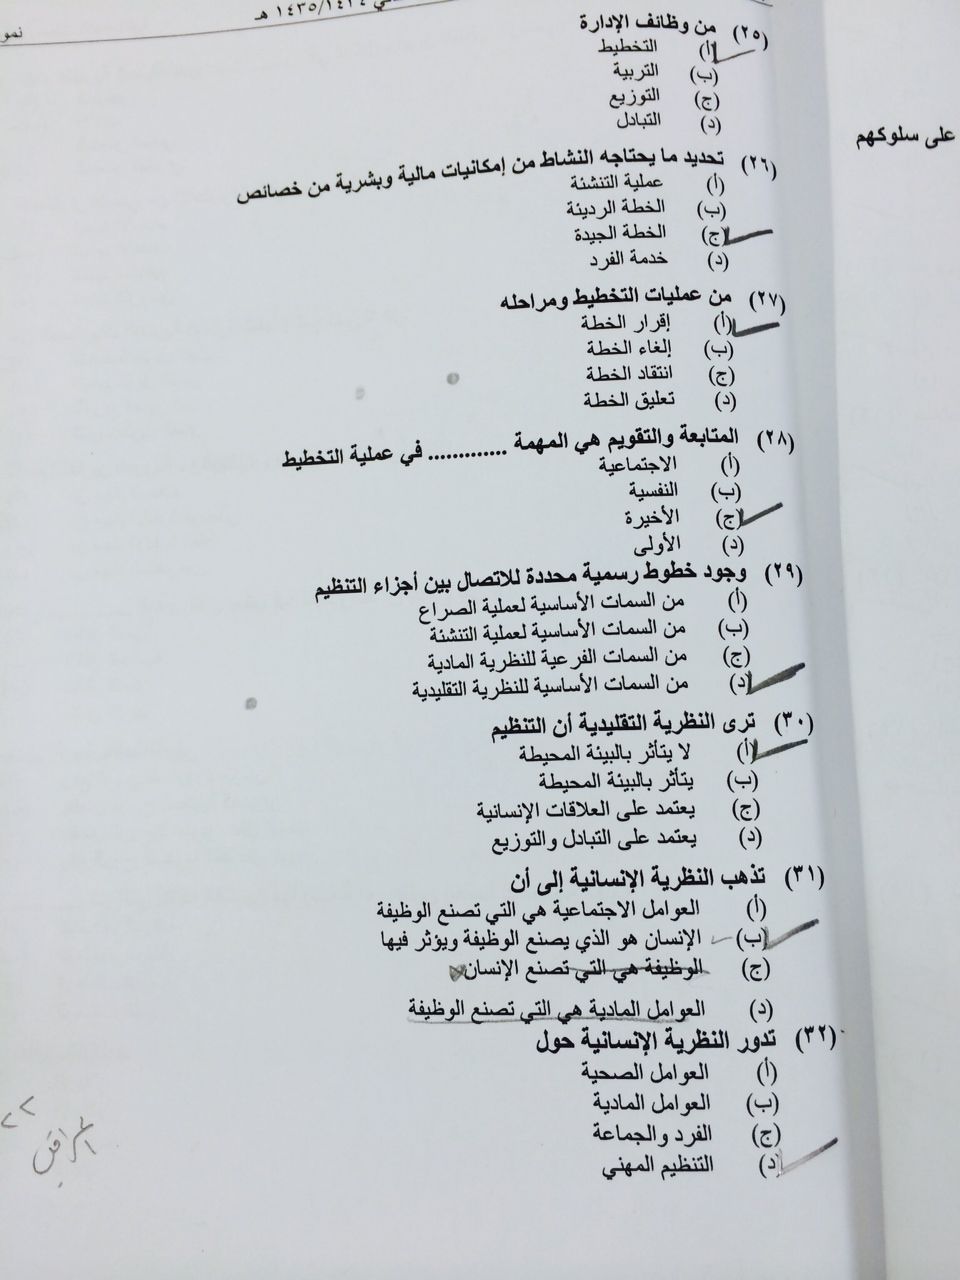 ١٤٣٥/١٤٣٤ هـ
نمو
على سلوكهم
(٢٥) من وظائف الإدارة
(أ) التخطيط
(ب) التربية
(ج) التوزيع
(د) التبادل
(٢٦) تحديد ما يحتاجه النشاط من إمكانيات مالية وبشرية من خصائص
(أ) عملية التنشئة
(ب) الخطة الرديئة
(ج) الخطة الجيدة
(د) خدمة الفرد
(٢٧) من عمليات التخطيط ومراحله
(أ) إقرار الخطة
(ب) إلغاء الخطة
(ج) انتقاد الخطة
(د) تعليق الخطة
(٢٨) المتابعة والتقويم هي المهمة ............. في عملية التخطيط
(أ) الاجتماعية
(ب) النفسية
(ج) الأخيرة
(د) الأولى
(٢٩) وجود خطوط رسمية محددة للاتصال بين أجزاء التنظيم
(أ) من السمات الأساسية لعملية الصراع
(ب) من السمات الأساسية لعملية التنشئة
(ج) من السمات الفرعية للنظرية المادية
(د) من السمات الأساسية للنظرية التقليدية
(٣٠) ترى النظرية التقليدية أن التنظيم
(أ) لا يتأثر بالبيئة المحيطة
(ب) يتأثر بالبيئة المحيطة
(ج) يعتمد على العلاقات الإنسانية
(د) يعتمد على التبادل والتوزيع
(٣١) تذهب النظرية الإنسانية إلى أن
(أ) العوامل الاجتماعية هي التي تصنع الوظيفة
(ب) الإنسان هو الذي يصنع الوظيفة ويؤثر فيها
(ج) الوظيفة هي التي تصنع الإنسان
(د) العوامل المادية هي التي تصنع الوظيفة
(٣٢) تدور النظرية الإنسانية حول
(أ) العوامل الصحية
(ب) العوامل المادية
(ج) الفرد والجماعة
(د) التنظيم المهني
٢٢